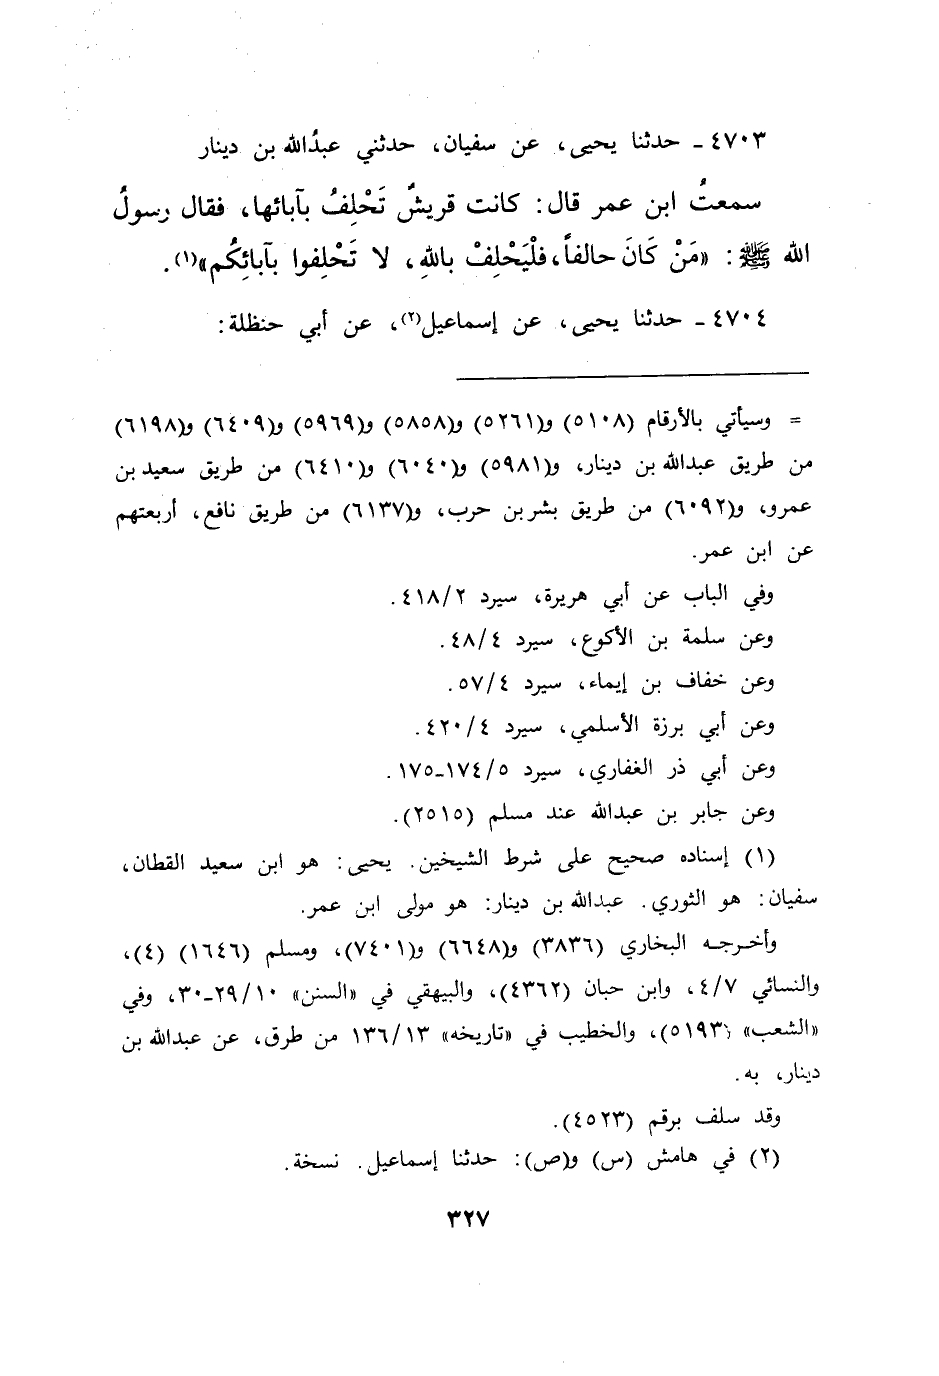 ٤٧٠٣ ـ حدثنا يحيى، عن سفيان، حدثني عبدُالله بن دينار
سمعتُ ابن عمر قال: كانت قريشٌ تَحْلِفُ بآبائها، فقال رسولُ
الله ﷺ: «مَنْ كَانَ حالفاً، فلْيَحْلِفْ باللهِ، لا تَحْلِفوا بآبائِكُم»(١).
٤٧٠٤ ـ حدثنا يحيى، عن إسماعيل(٢)، عن أبي حنظلة:
= وسيأتي بالأرقام (٥١٠٨) و(٥٢٦١) و(٥٨٥٨) و(٥٩٦٩) و(٦٤٠٩) و(٦١٩٨)
من طريق عبدالله بن دينار، و(٥٩٨١) و(٦٠٤٠) و(٦٤١٠) من طريق سعيد بن
عمرو، و(٦٠٩٢) من طريق بشر بن حرب، و(٦١٣٧) من طريق نافع، أربعتهم
عن ابن عمر.
وفي الباب عن أبي هريرة، سيرد ٤١٨/٢.
وعن سلمة بن الأكوع، سيرد ٤٨/٤.
وعن خفاف بن إيماء، سيرد ٥٧/٤.
وعن أبي برزة الأسلمي، سيرد ٤٢٠/٤.
وعن أبي ذر الغفاري، سيرد ١٧٤/٥ـ١٧٥.
وعن جابر بن عبدالله عند مسلم (٢٥١٥).
(١) إسناده صحيح على شرط الشيخين. يحيى: هو ابن سعيد القطان،
سفيان: هو الثوري. عبدالله بن دينار: هو مولى ابن عمر.
وأخرجه البخاري (٣٨٣٦) و(٦٦٤٨) و(٧٤٠١)، ومسلم (١٦٤٦) (٤)،
والنسائي ٤/٧، وابن حبان (٤٣٦٢)، والبيهقي في «السنن» ٢٩/١٠ـ٣٠، وفي
«الشعب» (٥١٩٣)، والخطيب في «تاريخه» ١٣٦/١٣ من طرق، عن عبدالله بن
دينار، به.
وقد سلف برقم (٤٥٢٣).
(٢) في هامش (س) و(ص): حدثنا إسماعيل. نسخة.
٣٢٧